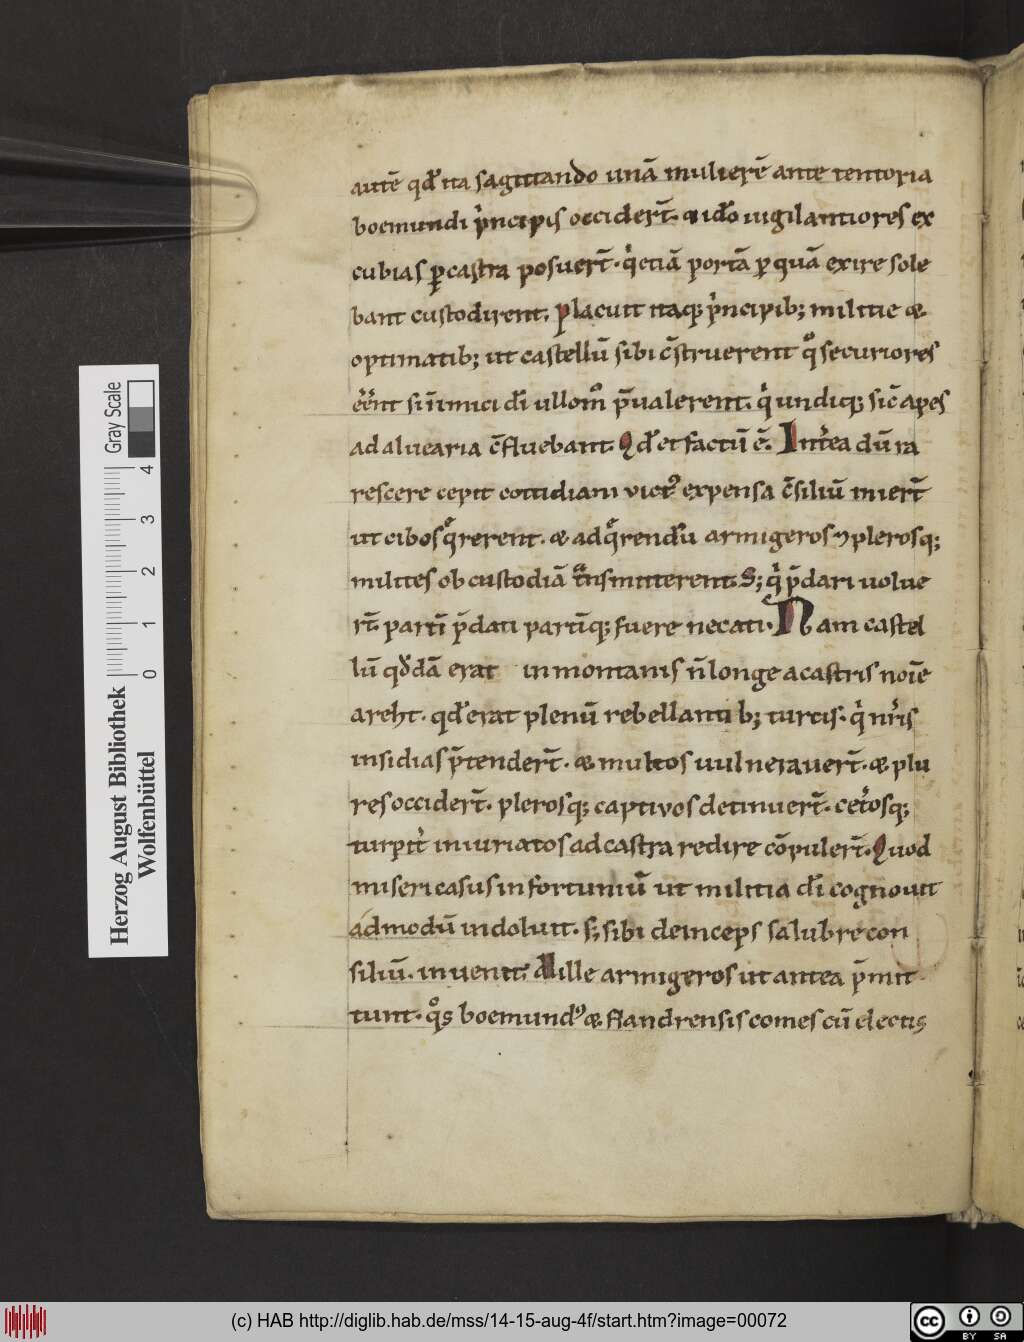 autē qđ ita sagittando unā mulierē ante tentoria
boemundi p̍ncipis occidert̄. & idō uigilantiores ex
cubias ꝑ castra posuert̄. q̍ etiā portā ꝑ quā exire sole
bant custodirent. placuit itaq; p̍ncipib; militie &
optimatib; ut castellū sibi c̄struerent qͦ securiores
eēnt si inimici dī ulloṁ p̄ualerent. q̍ undiq; sic̄ apes
ad aluearia c̄fluebant. Qđ et factū ē. Int̍ea dū ra
rescere cepit cottidiani victꝰ expensa c̄siliū iniert̄
ut cibos q̄rerent. & ad q̄rendū armigeros ⁊ plerosq;
milites ob custodiā tͣnsmitterent. S; q̍ p̄dari uolue
rt̄. partī p̄dati partīq; fuere necati. Nam castel
lū qđdā erat in montanis n̄ longe a castris noīe
areht. qđ erat plenū rebellantib; turcis. q̍ nr̄is
insidias p̄tendert̄. & multos uulnerauert̄. & plu
res occidert̄. plerosq; captivos detinuert̄. cet̍osq;
turpit̍ iniuriatos ad castra redire cōpulert̄. Quod
miseri casus infortuniū ut militia dī cognouit
admodū indoluit. s; sibi deinceps salubre con
siliū. inuenit. Mille armigeros ut antea p̄mit
tunt. qͦs boemundꝰ & flandrensis comes cū electis
Herzog August Bibliothek
Wolfenbüttel
0 1 2 3 4
Gray Scale
(c) HAB http://diglib.hab.de/mss/14-15-aug-4f/start.htm?image=00072
cc
BY SA